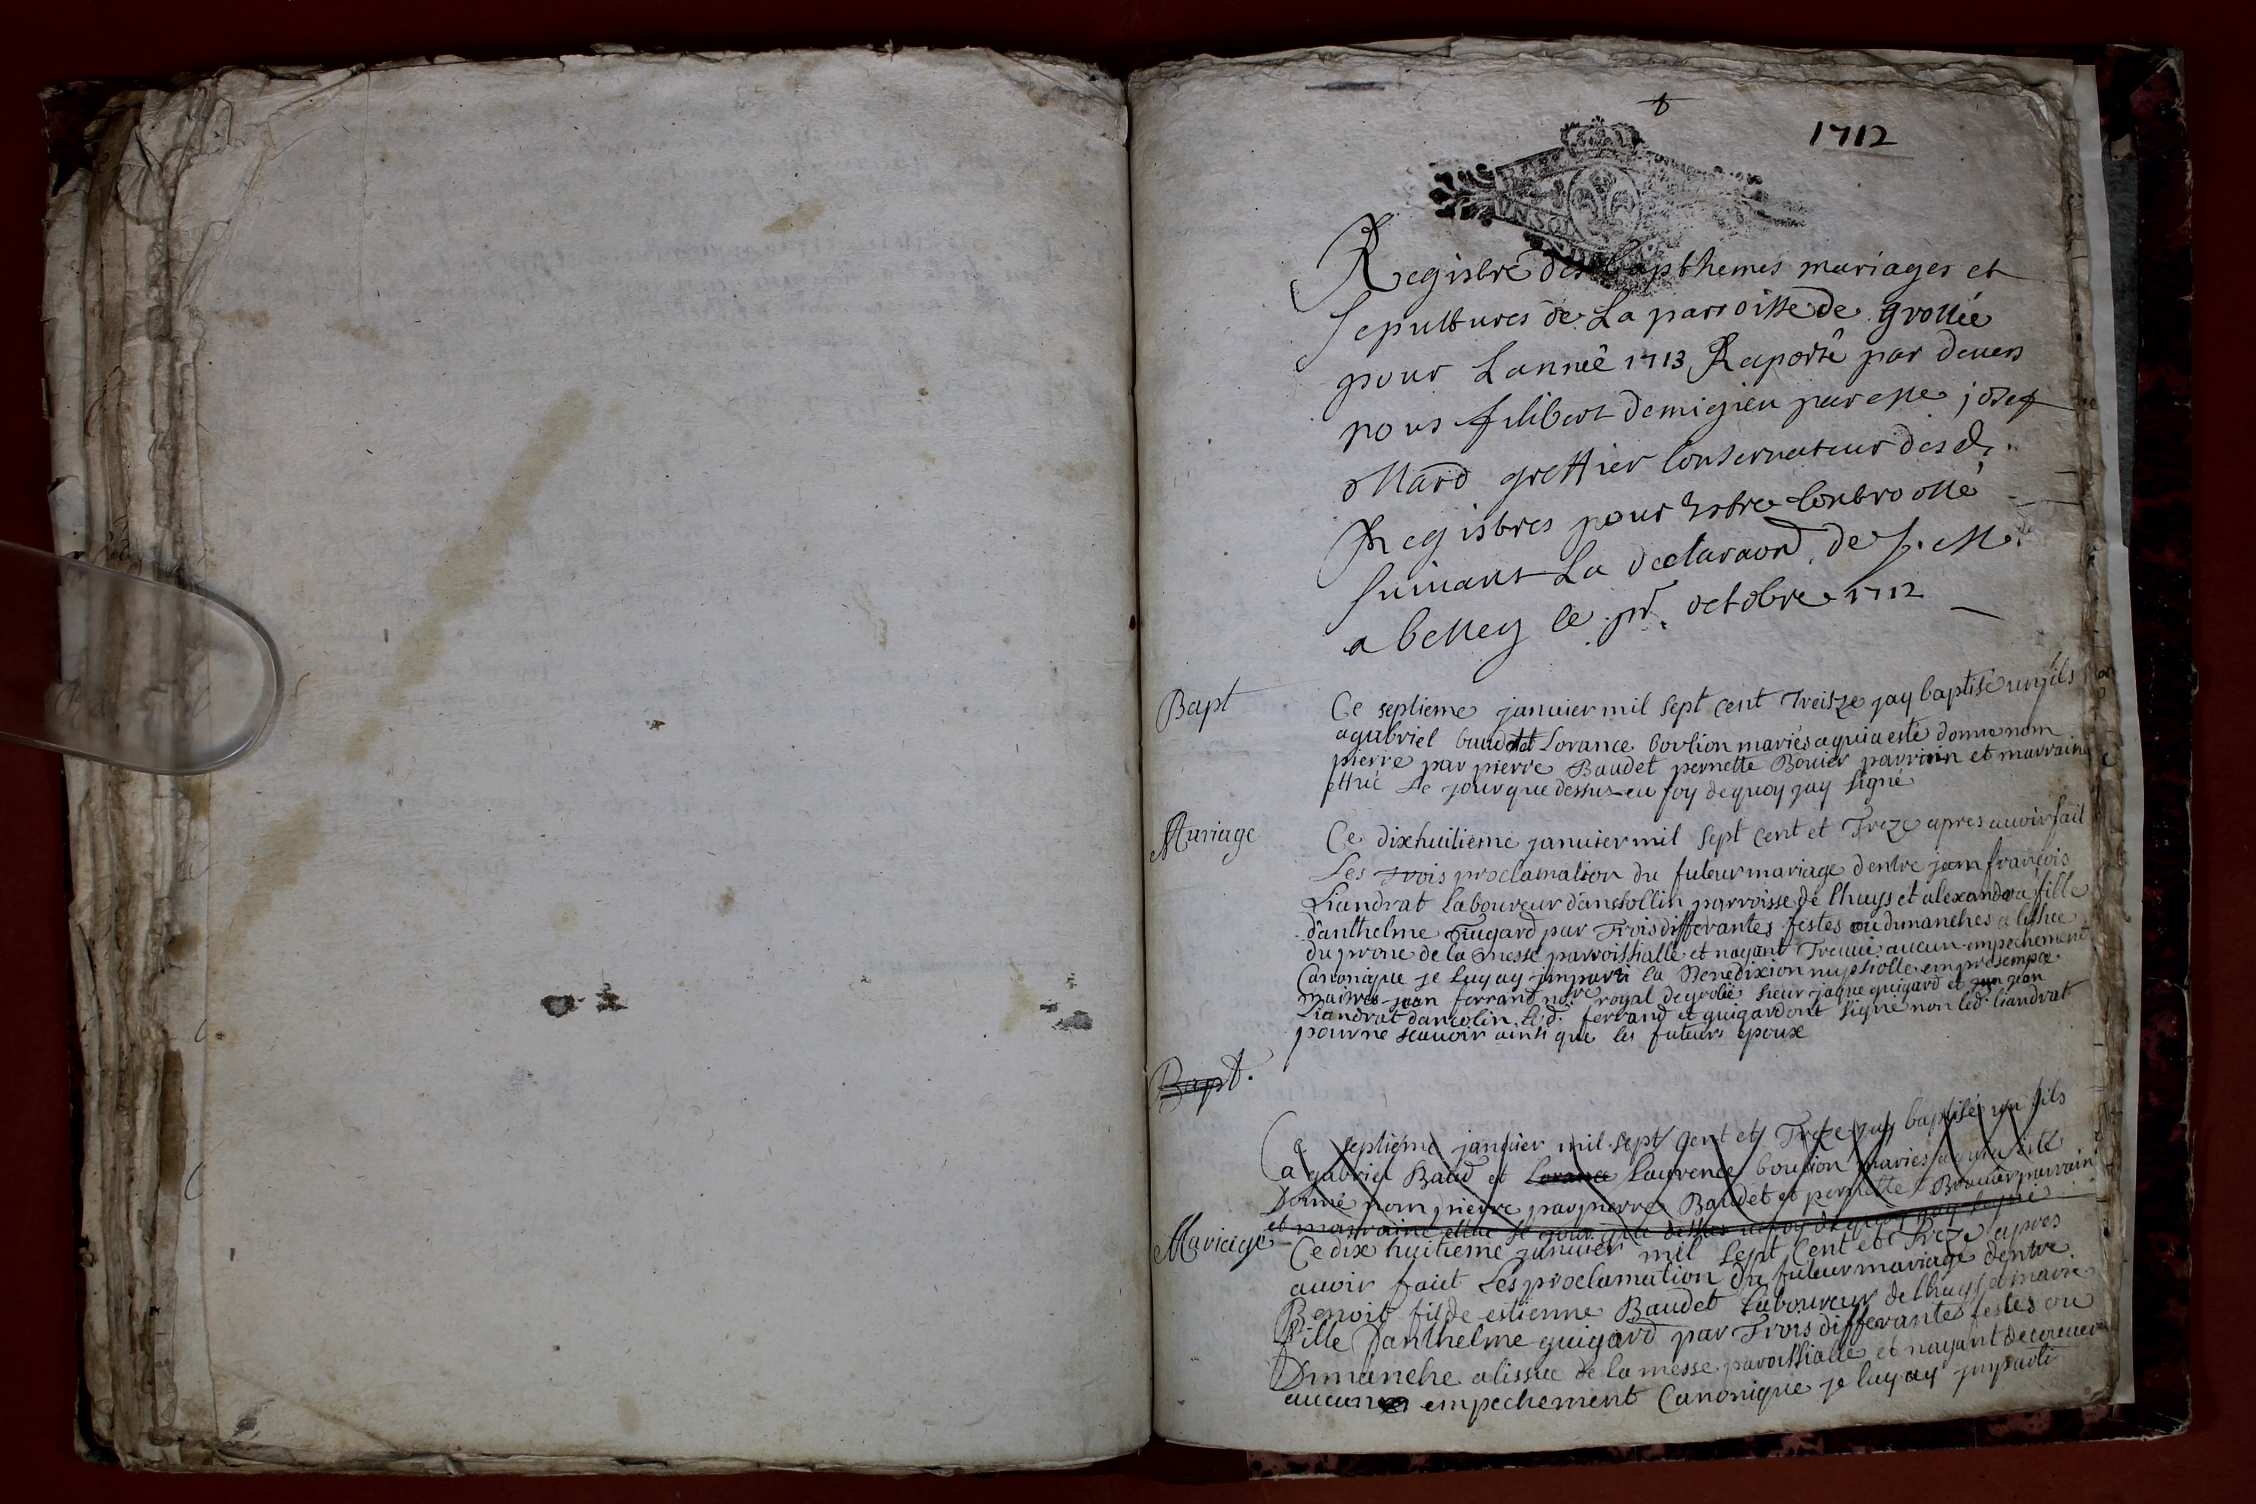 1712
UN SOL
Registre des bapthemes mariages et
sepultures de La parroisse de grollée
pour Lannée 1713 Raporté par devers
nous filibert demigieu par esse josef
ollard greffier Conservateur desd.
Registres pour Estre Contrôollé
suivant La declaraon de S. M.
a belley le pr. octobre 1712
Bapt
Ce septieme januier mil sept cent Treisze jay baptisé un fils
a gabriel baudet et Lorance bovlion mariés a qui a esté donne nom
pierre par pierre Baudet pernette Bouier parrain et marraine
ettrié Le jour que dessus en foy de quoy jay signé
Mariage
Ce dixhuitieme januier mil sept cent et Treze apres auoir fait
Les trois proclamation du futeur mariage dentre jean françois
Liandrat Laboureur danstollin parroisse de lhuys et alexandra fille
danthelme Guigard par Trois differantes festes ou dimanches a lissüe
du prone de la messe parroissialle et nayant Treuué aucun empechement
Canonique je luy ay imparti la Benedixion nuptiolle en presempce
maitres jean ferrand nore royal de grolié sieur jaque guigard et jean
Liandrat dancolin. led. ferrand et guigard ont signé non led. liandrat
pour ne scauoir ainsi que les futeurs epoux
Bapt.
Ce septieme januier mil sept cent et Treze jay baptisé un fils
a gabriel Baud et Lorance Laurence boulion mariés a qui a esté
Donné nom pierre par pierre Baudet et pernette Bouuier parrain
et marraine le jour que dessus en foy de quoy jay signé
Mariage
Ce dix huitieme januier mil sept Cent et Treze apres
auoir fait Les proclamation du futeur mariage dentre
Benoit fils de estienne Baudet Laboureur de lhuys et marie
fille danthelme guigard par Trois differantes festes ou
Dimanche a lissüe de la messe paroissialle et nayant decouuer
aucun empechement Canonique je luy ay imparti